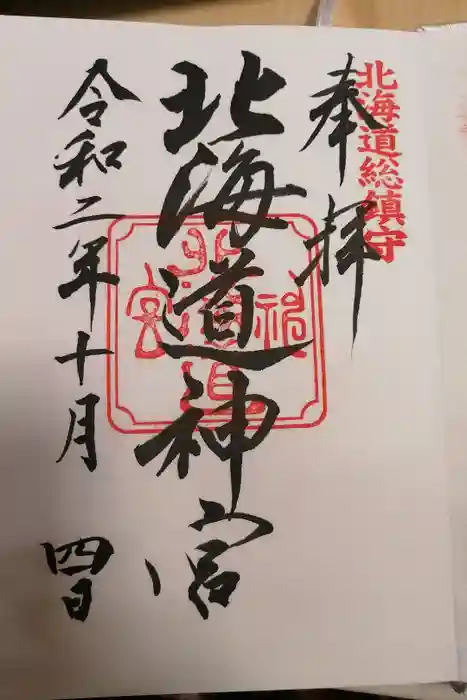 北海道総鎮守
奉拝
北海道神宮
令和二年十月四日